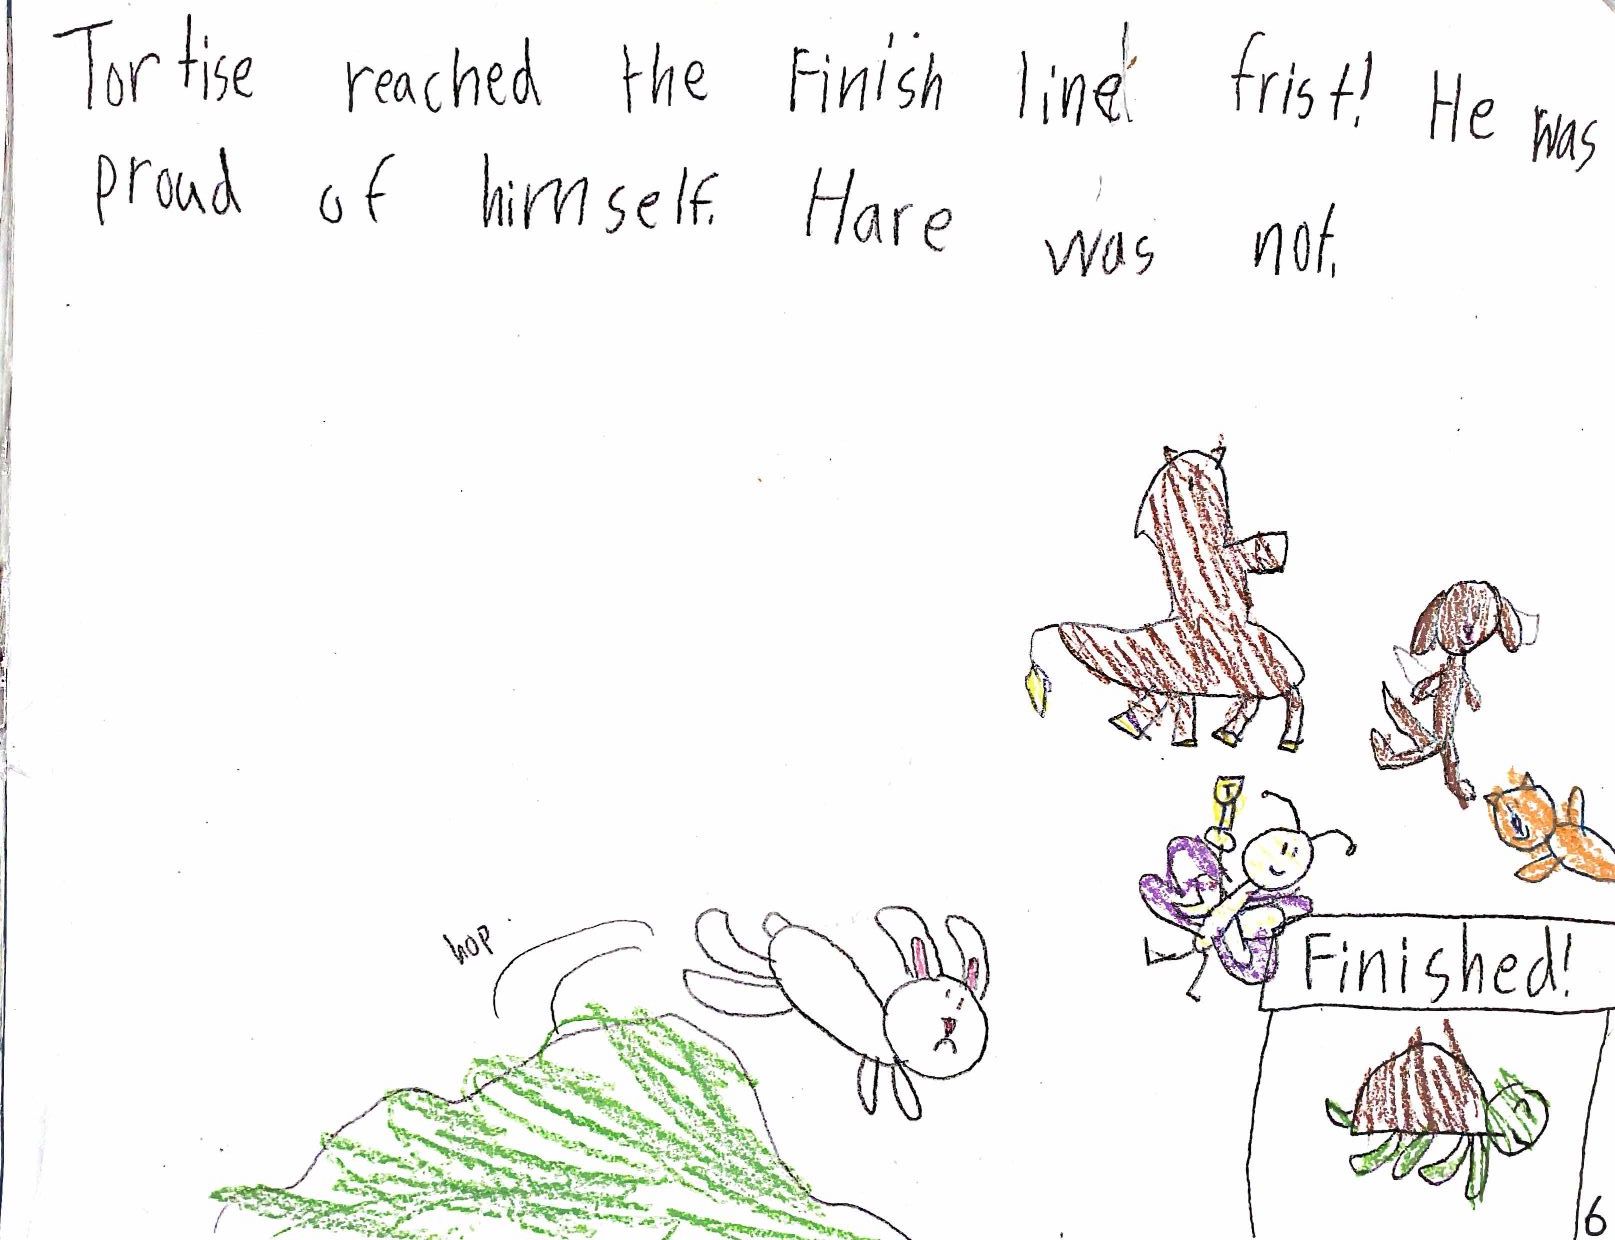 Tortise reached the Finish line frist! He was
proud of himself. Hare was not.
hop
T
Finished!
6